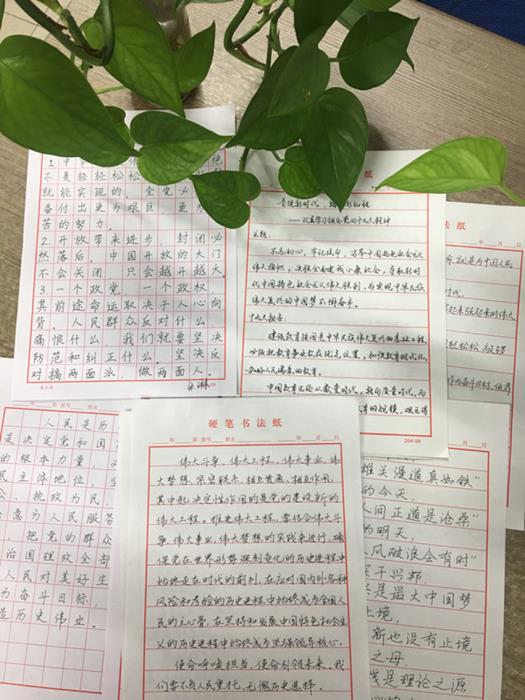 就能实现的。全党必
备付出更为艰巨、更为
苦的努力。
2.开放带来进步,封闭必
然落后。中国开放的大门
不会关闭,只会越开越大。
3.一个政党,一个政权,
其前途命运取决于人心向
背。人民群众反对什么、
痛恨什么,我们就要坚决
防范和纠正什么。坚决反
对搞两面派、做两面人。
纸
——认真学习领会党的十九大精神
主题:
不忘初心,牢记使命,高举中国特色社会主义
伟大旗帜,决胜全面建成小康社会,夺取新时
代中国特色社会主义伟大胜利,为实现中华民族
伟大复兴的中国梦不懈奋斗。
十九大报告:
建设教育强国是中华民族伟大复兴的基础工程,
必须把教育事业放在优先位置,加快教育现代化,
办好人民满意的教育。
纸
月 日
人民是历
是决定党和国
的根本力量。
民主体地位,
公、执政为民,
全意为人民服务
,把党的群众
治国理政全部
人民对美好生
为奋斗目标,
造历史伟业。
硬笔书法纸
年 班 座号 姓名 年 月 日
伟大斗争,伟大工程,伟大事业,伟
大梦想,紧密联系、相互贯通、相互作用,
其中起决定性作用的是党的建设新的
伟大工程。推进伟大工程,要结合伟大斗
争、伟大事业、伟大梦想的实践来进行,确
保党在世界形势深刻变化的历史进程中
始终走在时代的前列,在应对国内外各种
风险和考验的历史进程中始终成为全国人
民的主心骨,在坚持和发展中国特色社会主
义的历史进程中始终成为坚强领导核心。
使命呼唤担当,使命引领未来。我
们要不负人民重托,无愧历史选择,
雄关漫道真如铁”
的今天,
人间正道是沧桑”
的明天,
风破浪会有时”
是最大中国梦
止境,
新也没有止境
之母,
践是理论之源